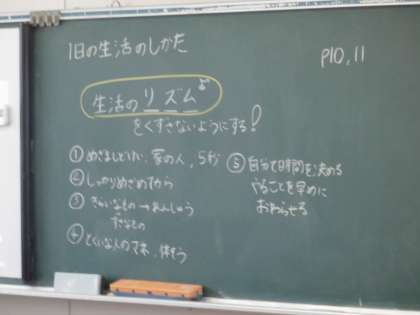 1日の生活のしかた
P10,11
生活のリズム♪
をくずさないようにする!
① めざましどけい、家の人、5分
② しっかりめざめすから
③ きらいなもの→れんしゅう
すきなもの
④ とくいな人のマネ、体そう
⑤ 自分で時間を決める
やることを早めに
おわらせる